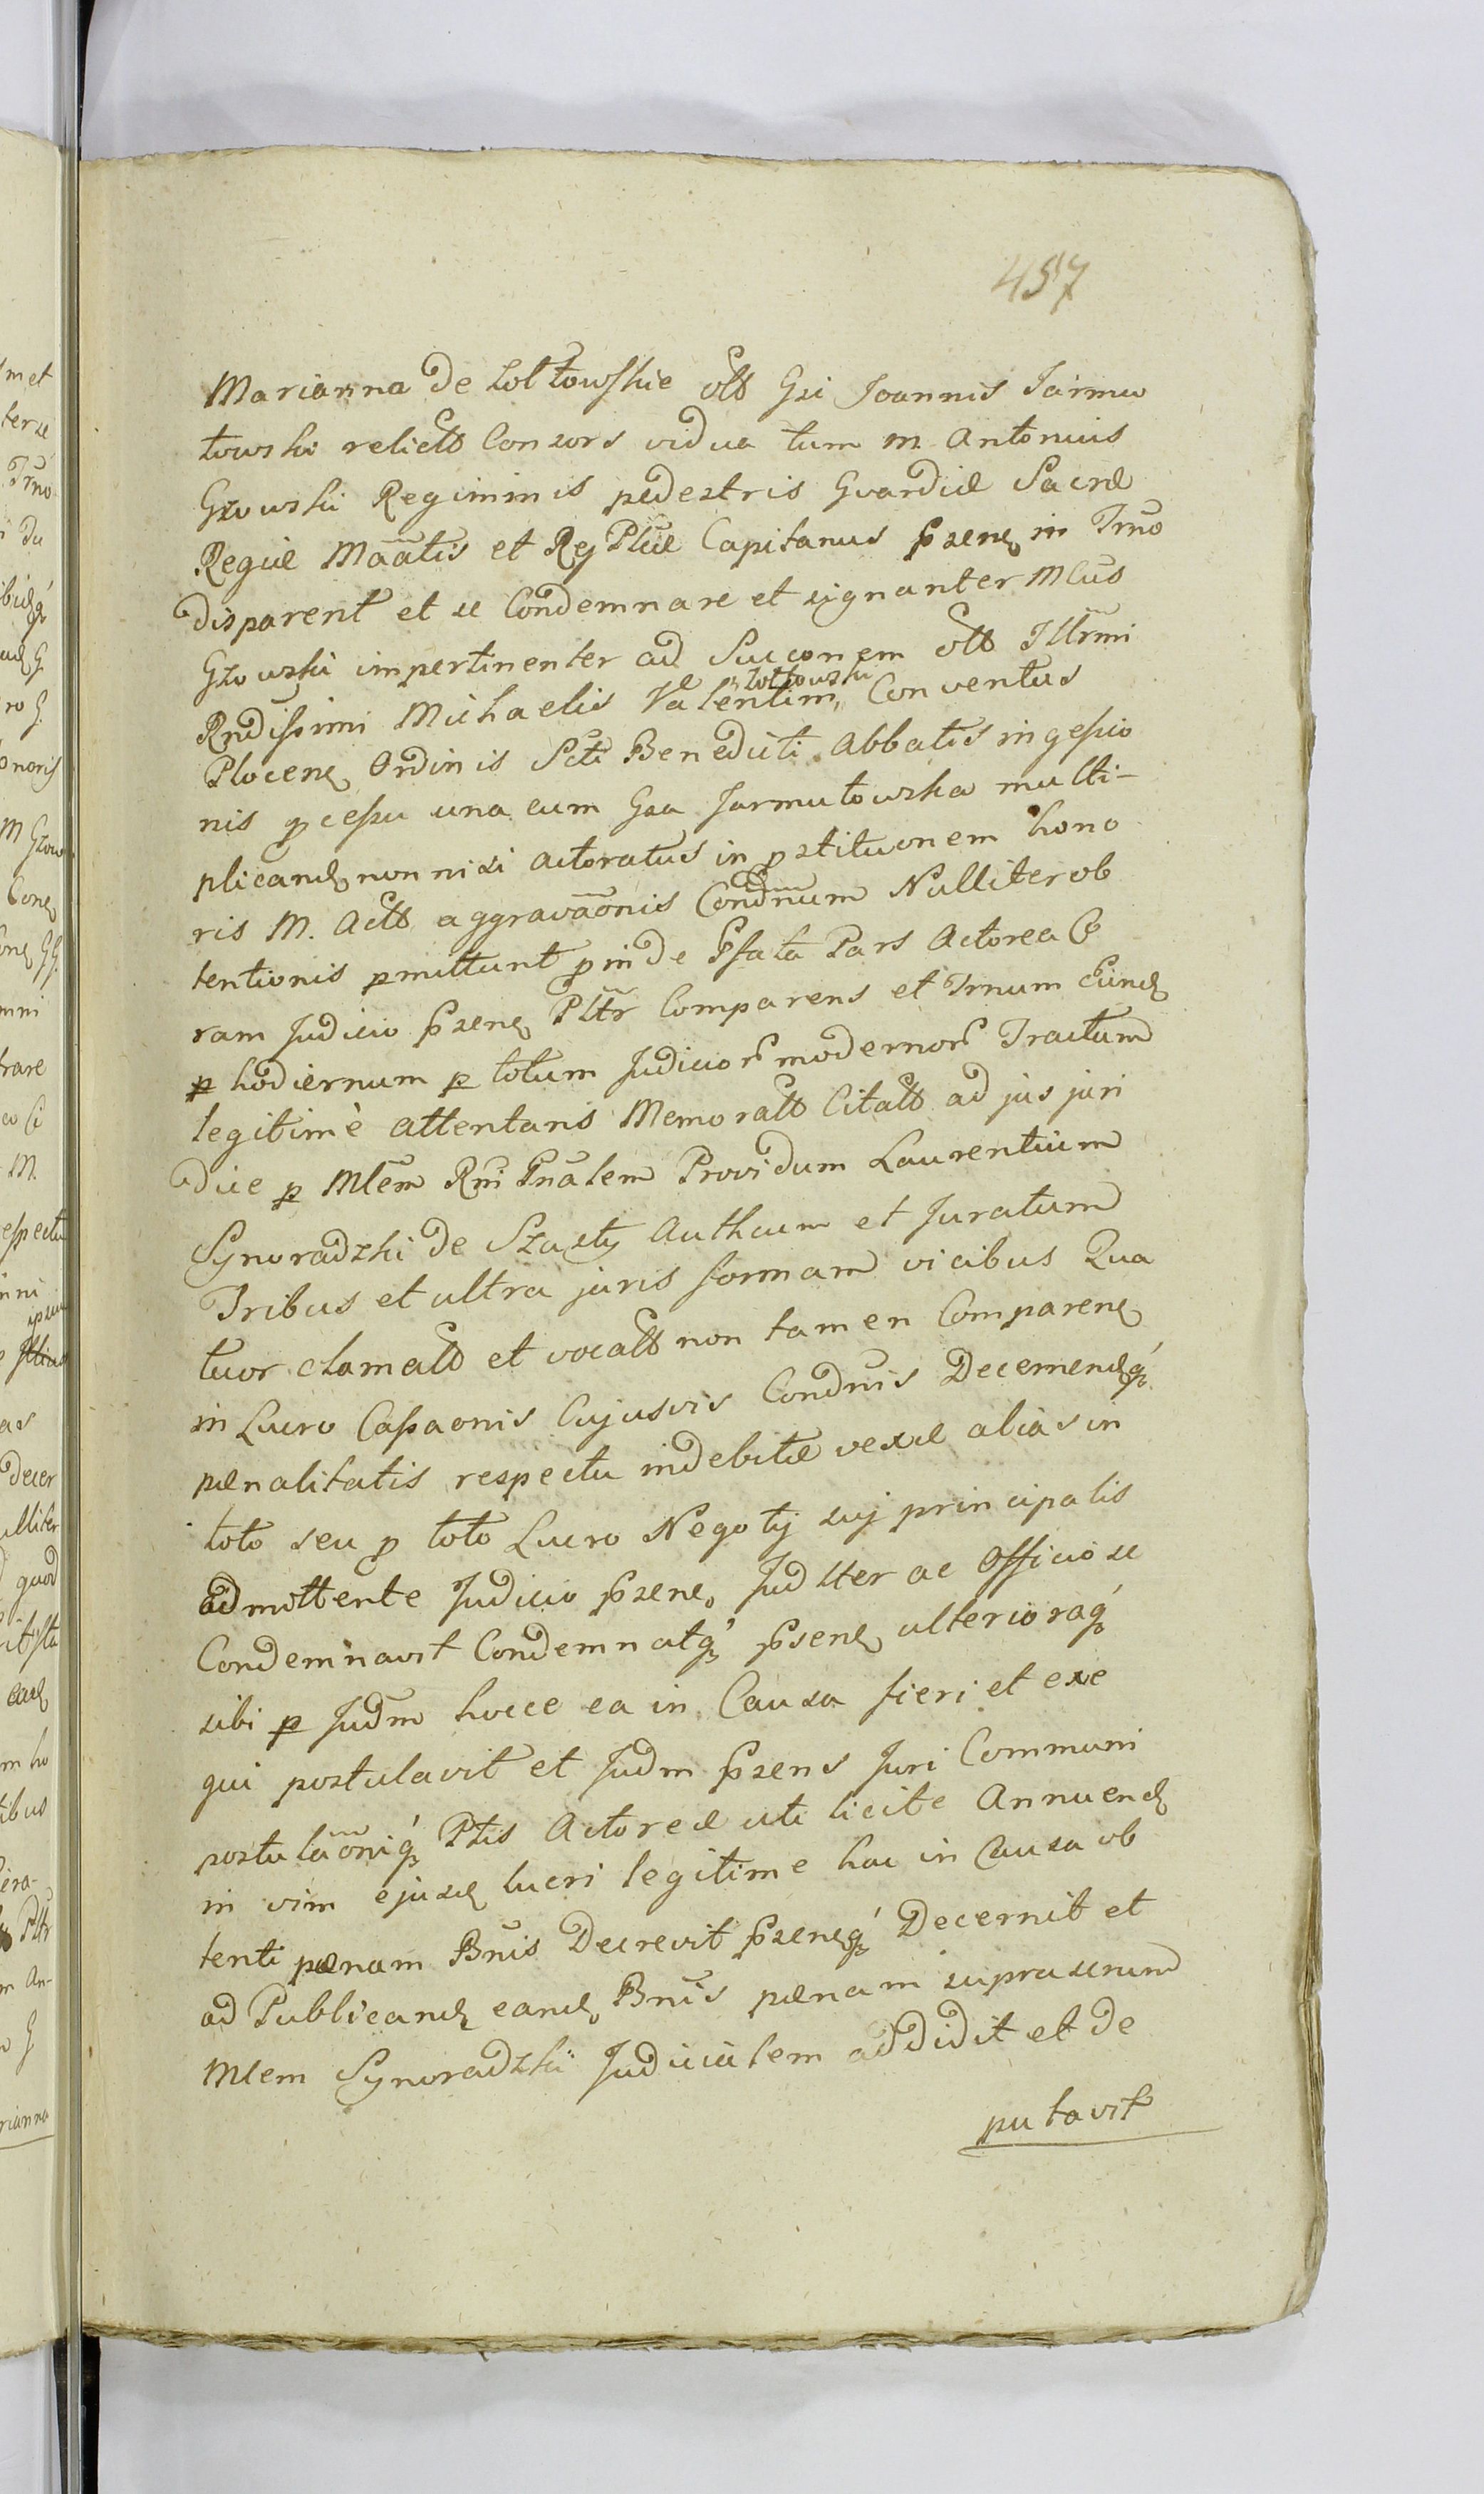 457
Marianna de Łołłowskie olb Gsi Joannis Jarmu
towski relictb Consors vidua tum M. Antonius
Gzowski Regiminis pedestris Gvardiæ Sacræ
Regiæ Maātis et Rej Plicæ Capitanus pszens in Trno
disparent et se Condemnare et signanter Mlūs
Gzowski impertinenter ad Succonem olb Illrmi
Rndissimi Michaelis Valentini Łołłowski Conventus
Plocens Ordinis Scti Benedicti Abbatis ingessio
nis pcessu una cum Gsa Jarmutowska multi-
plicand non nisi actoratus in pstitutionem hono
ris M. Actb aggravaōnis Condnum Nulliter ob
tentionis pmittunt pinde Psata Pars Actorea Co
ram Judicio pszens Pltr Comparens et Trnum Eund
p hodiernum p totum Judicior modernor Tractum
legitimè attentans Memoratb Citatb ad jus juri
dice p Mlem Rni Gnalem Providum Laurentium
Synoradzki de Szasty Authcum et Juratum
Tribus et ultra juris formam vicibus Qua
tuor clamatb et vocatb non tamen Comparens
in Lucro Cassaonis Cujusvis Condnis Decernendq
pænalitatis respectu indebitæ vexæ alias in
toto seu p toto Lucro Negotij suj principalis
admittente Judicio pszens Judlter ac Officiose
Condemnavit Condemnatq psens ulterioraq
sibi p Judm hocce ea in Causa fieri et exe
qui postulavit et Judm pszens Juri Communi
postulaōniq Ptis Actoreæ uti licite Annuend
in vim ejusd lucri legitime hac in Causa ob
tenti pænam Bnis Decrevit pszensq Decernit et
ad Publicand eand Bnis pænam supraserum
Mlem Synoradzki Judicialem addidit et de
putavit